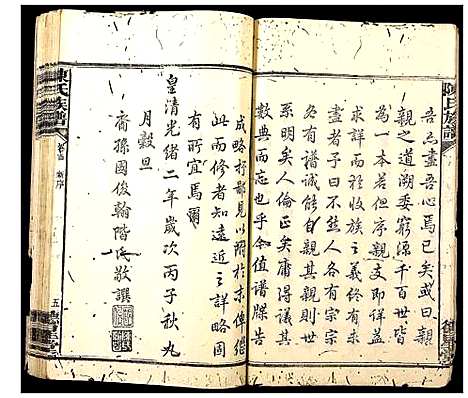 陳氏族譜
吾亦盡吾心焉已矣或曰親
親之道溯委窮源千百世皆
為一本若但序親支即詳孟
求詳而於收族之義終有未
盡者予曰不然人各有宗宗
各有譜誠能各親其親則世
系明矣人倫正矣庸得議其
數典而忘也乎今值譜牒告
成略抒鄙見以附於末俾繼
此而修者知遠近之詳略固
有所宜焉爾
皇清光緒二年歲次丙子秋九
月穀旦
裔孫國俊翰階氏敬譔
陳氏族譜
卷首
新序
五